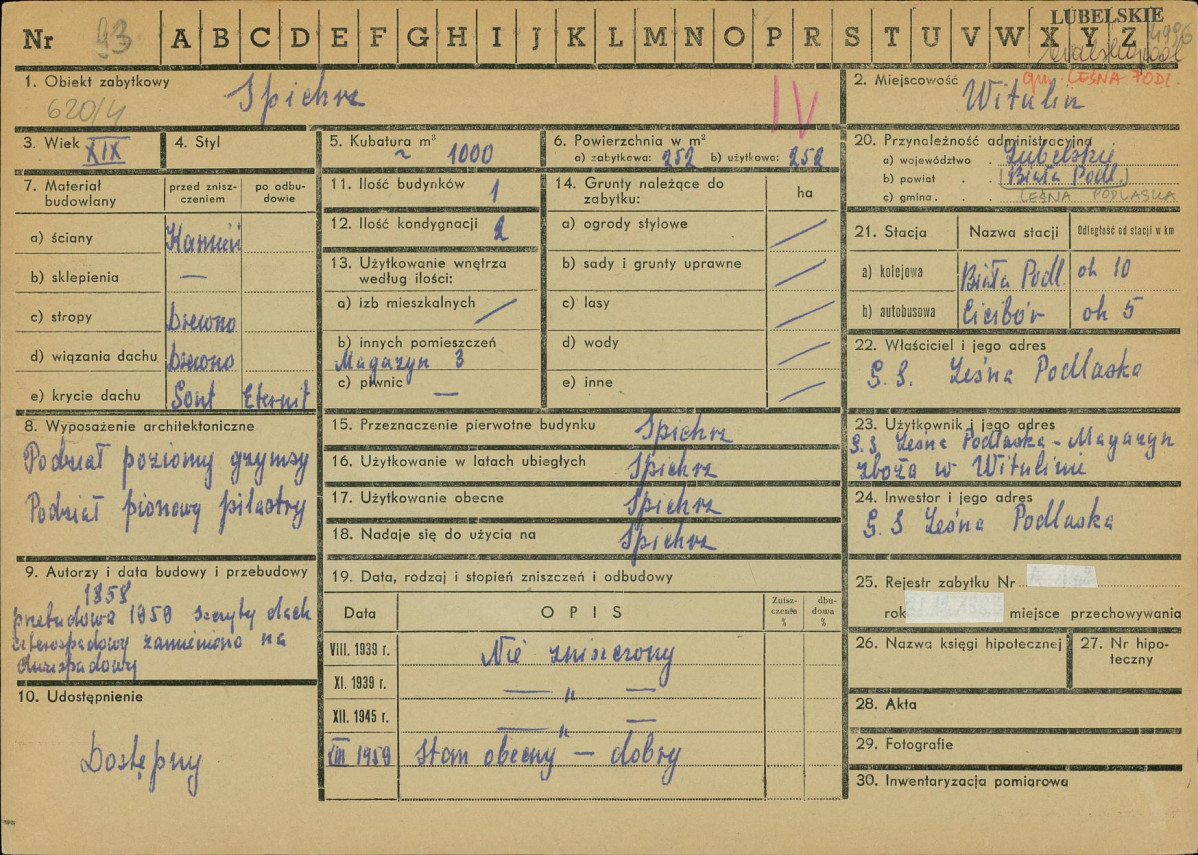 LUBELSKIE
Nr 93 A B C D E F G H I J K L M N O P R S T U V W X Y Z
gm. LEŚNA PODL.
1. Obiekt zabytkowy
620/4
Spichrz
IV
2. Miejscowość
Witulin
3. Wiek XIX
4. Styl
5. Kubatura m³
~ 1000
6. Powierzchnia w m²
a) zabytkowa: 252 b) użytkowa: 252
7. Materiał budowlany
przed znisz-
czeniem
po odbu-
dowie
a) ściany Kamień
b) sklepienia —
c) stropy drewno
d) wiązania dachu drewno
e) krycie dachu Gont Eternit
8. Wyposażenie architektoniczne
Podział poziomy gzymsy
Podział pionowy pilastry
9. Autorzy i data budowy i przebudowy
1858
przebudowa 1959 szczyty dach
czterospadowy zamieniono na
dwuspadowy
10. Udostępnienie
Dostępny
11. Ilość budynków 1
12. Ilość kondygnacji 2
13. Użytkowanie wnętrza
według ilości:
a) izb mieszkalnych /
b) innych pomieszczeń
Magazyn 3
c) piwnic —
14. Grunty należące do
zabytku:
ha
a) ogrody stylowe /
b) sady i grunty uprawne /
c) lasy /
d) wody /
e) inne /
15. Przeznaczenie pierwotne budynku Spichrz
16. Użytkowanie w latach ubiegłych Spichrz
17. Użytkowanie obecne Spichrz
18. Nadaje się do użycia na Spichrz
19. Data, rodzaj i stopień zniszczeń i odbudowy
Data OPIS Znisz-
czenie
%
dbu-
dowa
%
VIII. 1939 r. Nie zniszczony
XI. 1939 r. — " —
XII. 1945 r. — " —
VIII 1959 stan obecny — dobry
20. Przynależność administracyjna
a) województwo . Lubelskie
b) powiat . . (Biała Podl.)
c) gmina . . . LEŚNA PODLASKA
21. Stacja Nazwa stacji Odległość od stacji w km
a) kolejowa Biała Podl. ok 10
b) autobusowa Cicibór ok 5
22. Właściciel i jego adres
G. S. Leśna Podlaska
23. Użytkownik i jego adres
G.S Leśna Podlaska - Magazyn
zboża w Witulinie
24. Inwestor i jego adres
G. S Leśna Podlaska
25. Rejestr zabytku Nr
rok miejsce przechowywania
26. Nazwa księgi hipotecznej
27. Nr hipo-
teczny
28. Akta
29. Fotografie
30. Inwentaryzacja pomiarowa